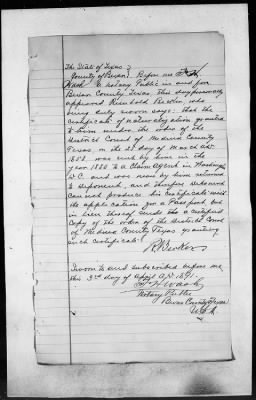 The State of Texas }
County of Bexar } Before me
a Notary Public in and for
Bexar County Texas this day personally
appeared Reinhold Becker, who
being duly sworn says: that the
certificate of naturalization granted
to him under the order of the
District Court of Medina County
Texas on the day of March AD
185 was sent by him in the
year 1880 to a Claim Agent in Washington
D.C. and was never by him returned
to deponent and therefore deponent
cannot produce his Certificate with
the application for a Passport, but
in lieu thereof sends the a certified
Copy of the order of the District Court
of Medina County Texas granting
such certificate.
R Becker
Sworn to and subscribed before me
this 3rd day of April AD 1891.
Notary Public
Bexar County Texas
U.S.A.